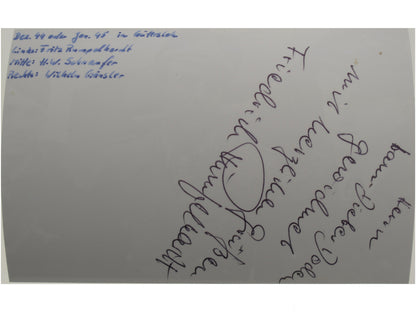 Dez. 44 oder Jan. 45 in Gütersloh
Links: Fritz Rumpelhardt
Mitte: H.W. Schnaufer
Rechts: Wilhelm Gänsler
Herrn
gewidmet
mit herzlichen Grüßen
Friedrich Rumpelhardt